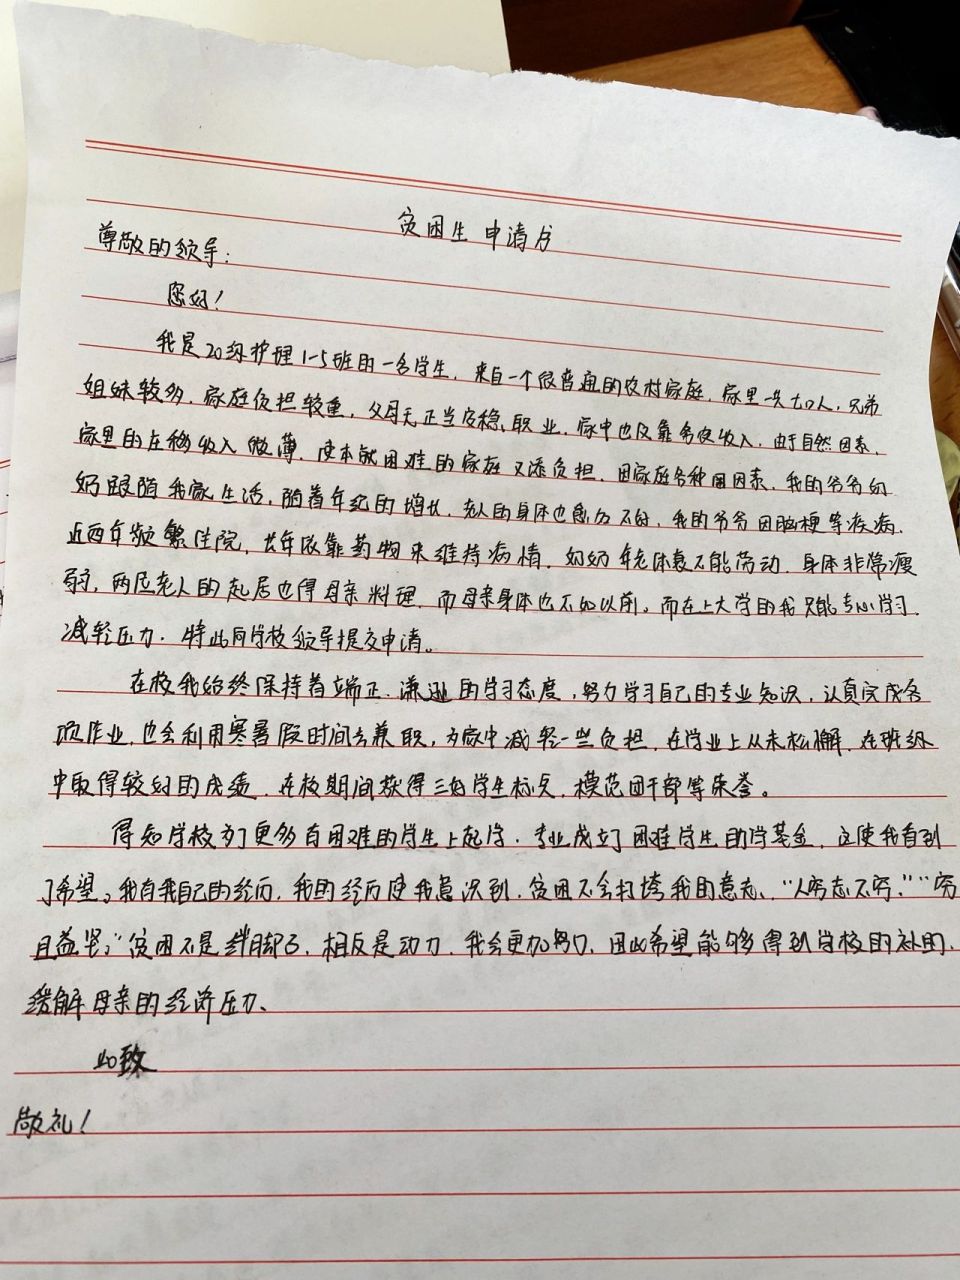 贫困生申请书
尊敬的领导:
您好!
我是20级护理1-5班的一名学生，来自一个很普通的农村家庭，家里一共七口人，兄弟
姐妹较多，家庭负担较重，父母无正当安稳职业，家中也仅靠务农收入，由于自然因素，
家里的庄稼收入微薄，使本就困难的家庭又添负担，因家庭各种因素，我的爷爷奶
奶跟随我家生活，随着年纪的增长，老人的身体也愈加不好，我的爷爷因脑梗等疾病，
近两年频繁住院，长年依靠药物来维持病情，奶奶年老体衰不能劳动，身体非常瘦
弱，两位老人的起居也得母亲料理，而母亲身体也不如以前。而在上大学的我只能专心学习，
减轻压力，特此向学校领导提交申请。
在校我始终保持着端正、谦逊的学习态度，努力学习自己的专业知识，认真完成各
项作业，也会利用寒暑假时间去兼职，为家中减轻一些负担，在学业上从未松懈，在班级
中取得较好的成绩，在校期间获得三好学生标兵，模范团干部等荣誉。
得知学校为了更多有困难的学生上起学，专业成立了困难学生助学基金，这使我看到
了希望。我有我自己的经历，我的经历使我意识到，贫困不会打垮我的意志、“人穷志不穷，”“穷
且益坚，”贫困不是绊脚石，相反是动力，我会更加努力，因此希望能够得到学校的补助，
缓解母亲的经济压力、
此致
敬礼!